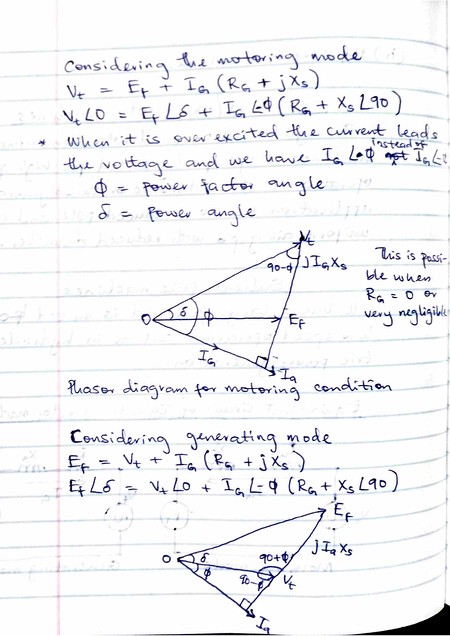 Considering the motoring mode
Vt = Ef + IG (RG + jXs)
Vt∠0 = Ef∠δ + IG∠-ϕ (RG + Xs∠90)
* When it is over excited the current leads
the voltage and we have IG∠ϕ instead of IG∠-
ϕ = power factor angle
δ = power angle
Vt
90-ϕ
jIGXs
This is possi-
ble when
RG = 0 or
very negligible
O
δ
ϕ
Ef
IG
Ia
Phasor diagram for motoring condition
Considering generating mode
Ef = Vt + IG (RG + jXs)
Ef∠δ = Vt∠0 + IG∠-ϕ (RG + Xs∠90)
Ef
jIaXs
O
δ
ϕ
90+ϕ
90-ϕ
Vt
Ia